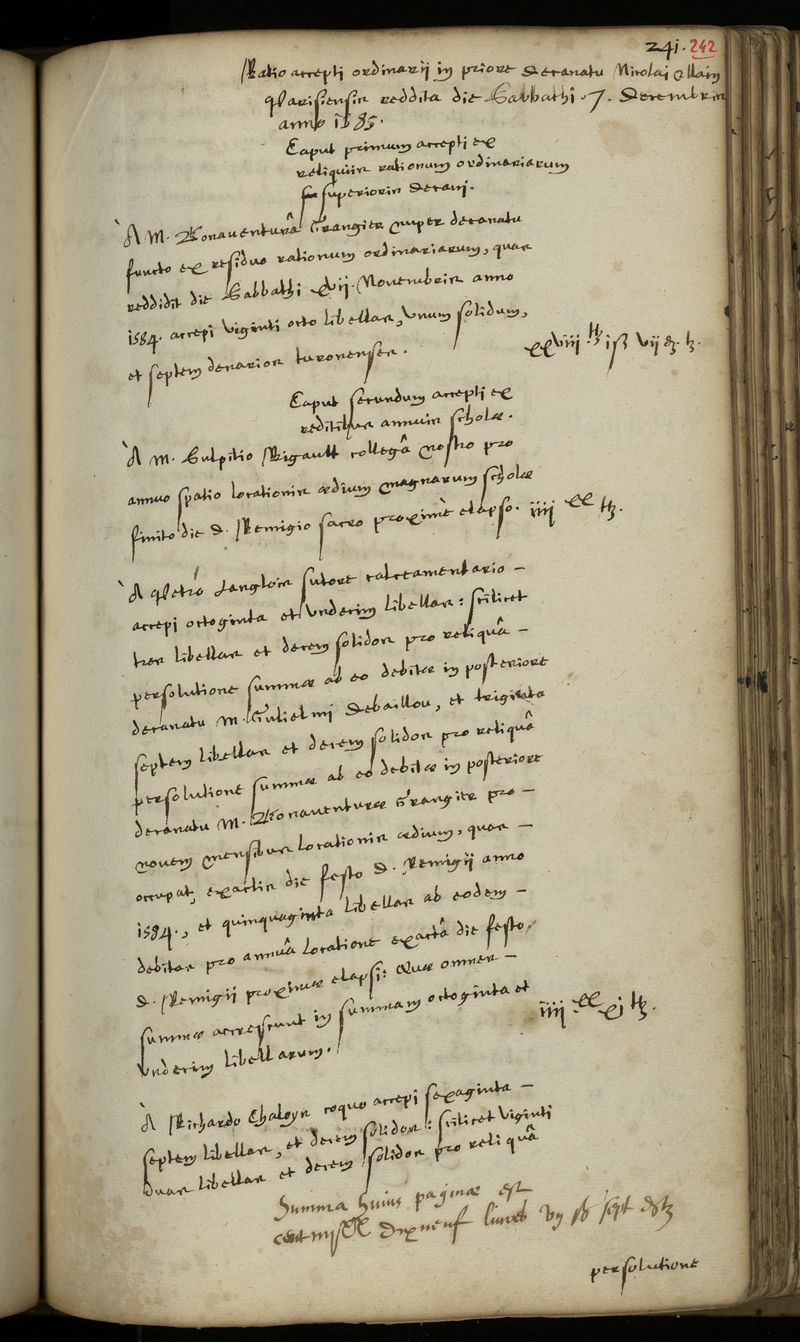 241. 242
Ratio accepti ordinarii in priore decanatu Nicolai Allain
Parisiensis reddita die Sabbathi 7. decembris
anno 1585.
Caput primum accepti ex
reliquiis rationum ordinariarum
superioris decani.
A M. Bonaventurâ Grangier nuper decanatu
functo ex residuo rationum ordinariarum, quas
reddidit die Sabbathi xvij. Novembris anno
1584. accepi viginti octo libellas, unum solidum,
et septem denarios turonenses.
xxviii tt i ß vij d. t.
Caput secundum accepti ex
reditibus annuis scholæ.
A M. Sulpitio Rigault collegâ nostro pro
annuo spatio locationis ædium magnarum scholæ
finito die D. Remigio sacro proximè elapso.
iiij xx tt.
A Petro Langlois sutore calceamentario –
accepi octoginta et undecim libellas: scilicet
tres libellas et decem solidos pro reliquâ –
persolutione summæ ab eo debitæ in posteriore
decanatu M. Gulielmi Debaillou, et triginta
septem libellas et decem solidos pro reliquâ
persolutione summæ ab eo debitæ in posteriore
decanatu M. Bonaventuræ Grangier pro –
novem mensibus locationis ædium, quas –
occupat, exactis die festo D. Remigii anno
1584., et quinquaginta libellas ab eodem –
debitas pro annuâ locatione exactâ die festo
D. Remigii proximæ elapsi: Quæ omnes –
summæ accrescunt in summam octoginta et
undecim libellarum.
iiij xx xj tt.
A Richardo Chaloyn coquo accepi sexaginta –
septem libellas, et decem solidos: scilicet viginti
duas libellas et decem solidos pro reliquâ
Summa huius paginæ est
dixneuf livres sept
persolutione